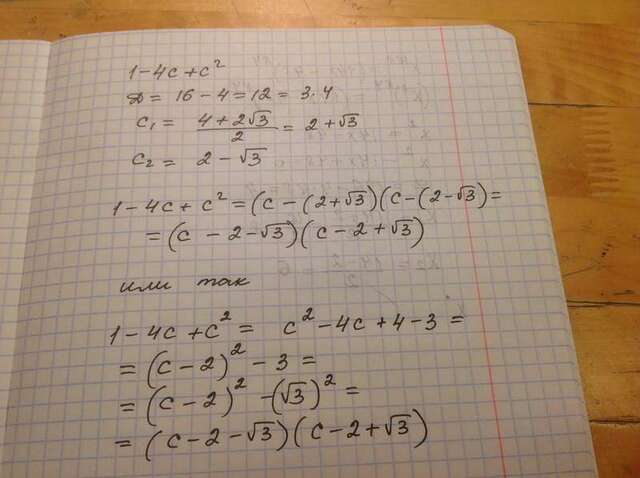 1-4c+c²
D = 16-4=12 = 3·4
c₁ = (4+2√3)/2 = 2+√3
c₂ = 2-√3
1-4c+c² = (c-(2+√3)(c-(2-√3)=
=(c-2-√3)(c-2+√3)
или так
1-4c+c² = c²-4c+4-3=
=(c-2)²-3=
=(c-2)²-(√3)²=
=(c-2-√3)(c-2+√3)